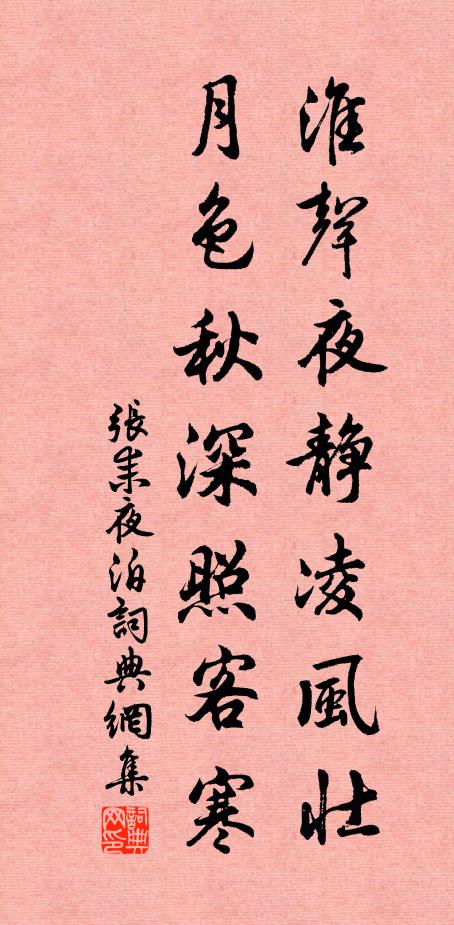 淮聲夜静凌風壯
月色秋深照客寒
張耒夜泊詞典網集
詞典網印